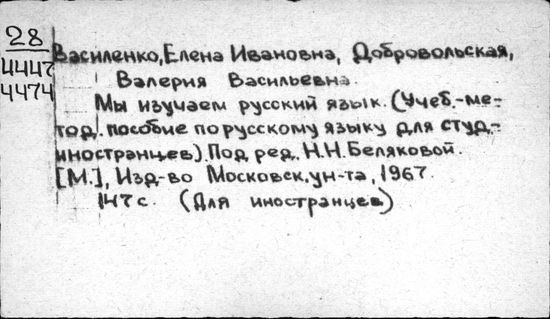 28
4447
4474
Василенко, Елена Ивановна, Добровольская,
Валерия Васильевна.
Мы изучаем русский язык. (Учеб.-ме-
тод. пособие по русскому языку для студ-
иностранцев). Под ред. Н.Н. Беляковой.
[М.], Изд-во Московск. ун-та, 1967.
147 с. (Для иностранцев)